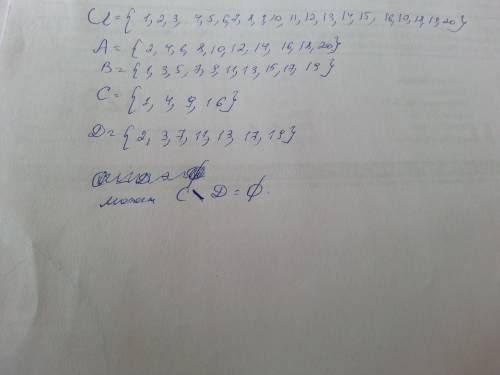 U = { 1, 2, 3, 4, 5, 6, 7, 8, 9, 10, 11, 12, 13, 14, 15, 16, 17, 18, 19, 20}
A = { 2, 4, 6, 8, 10, 12, 14, 16, 18, 20}
B = { 1, 3, 5, 7, 9, 11, 13, 15, 17, 19}
C = { 1, 4, 9, 16}
D = { 2, 3, 7, 11, 13, 17, 19}
C \ D = ∅.